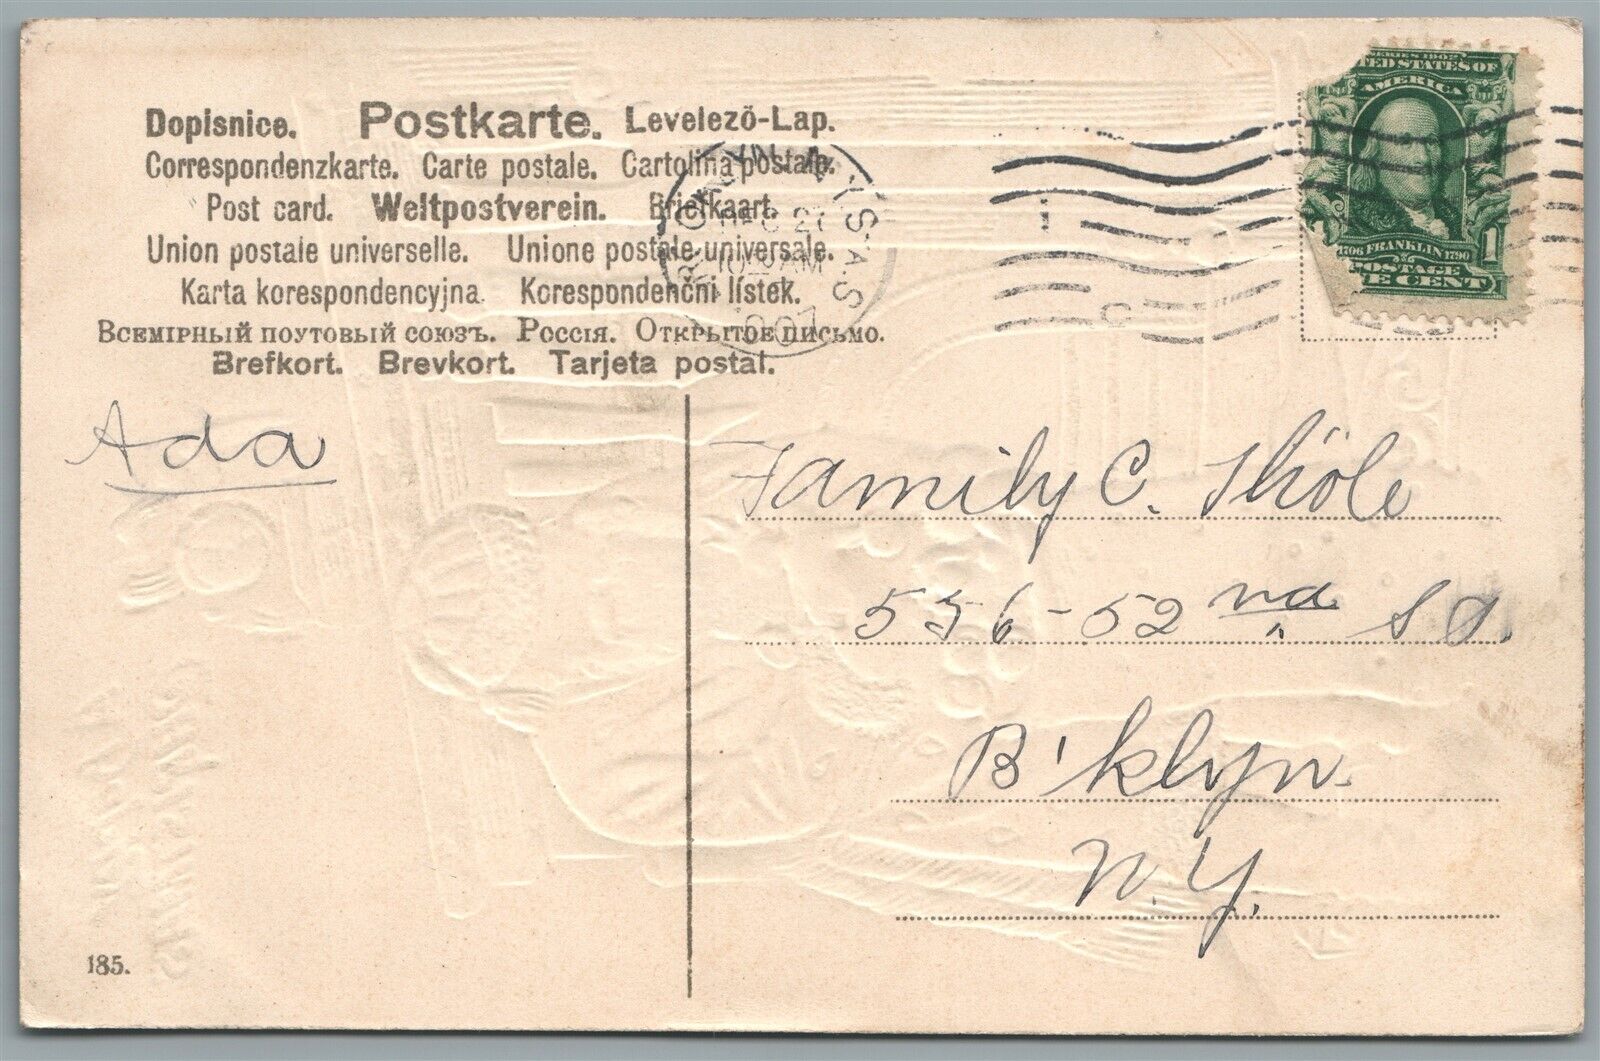 Dopisnice. Postkarte. Levelező-Lap.
Correspondenzkarte. Carte postale. Cartolina postale.
Post card. Weltpostverein. Briefkaart.
Union postale universelle. Unione postale universale.
Karta korespondencyjna. Korespondenční lístek.
Всемірный поутовый союзъ. Россія. Открытое письмо.
Brefkort. Brevkort. Tarjeta postal.
SERIES 1902
UNITED STATES OF
AMERICA
1706 FRANKLIN 1790
POSTAGE 1
E CENT
BROOKLYN N.Y.
DEC 27
10 AM
1907
Ada
Family C.
556-52nd St.
B'klyn
N.Y.
185.